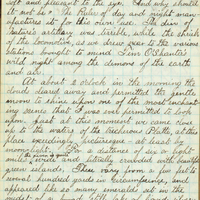 not and pleases to the eye. And why should
it not be? The Ruler of day and night man-
ufactures it for his own use. The din of
nature's artillery was terrible, while the shriek
of the locomotive, as we drew near to the various
stations brought to mind Tam O'Shanter's
wild night among the demons of the earth
and air.
At about 2 o'clock in the morning the
clouds cleared away and permitted the gentle
moon to shine upon one of the most enchant-
ing scenes that I was ever permitted to look
upon. Just at this moment we came close
up to the waters of the treacherous Platte, at this
place exceedingly picturesque at least by
moonlight. For a distance of six or eight
miles the river is quite
wide and literally crowded with beautiful
green islands. These vary from a few feet to
several hundred yards in circumference, and
appeared like so many emeralds set in the